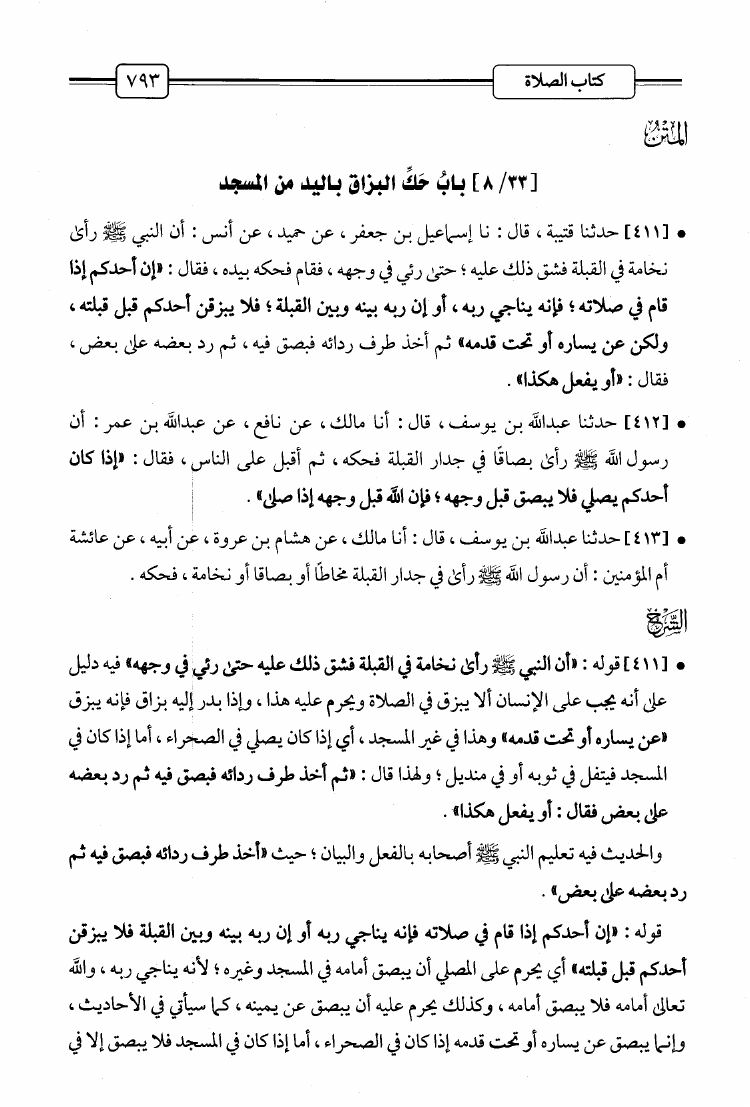 كتاب الصلاة ٧٩٣
المتن
[٣٣/ ٨] بابُ حَكِّ البزاق باليد من المسجد
• [٤١١] حدثنا قتيبة ، قال : نا إسماعيل بن جعفر ، عن حميد ، عن أنس : أن النبي ﷺ رأى
نخامة في القبلة فشق ذلك عليه ؛ حتى رئي في وجهه ، فقام فحكه بيده ، فقال : «إن أحدكم إذا
قام في صلاته ؛ فإنه يناجي ربه ، أو إن ربه بينه وبين القبلة ؛ فلا يبزقن أحدكم قبل قبلته ،
ولكن عن يساره أو تحت قدمه» ثم أخذ طرف ردائه فبصق فيه ، ثم رد بعضه على بعض ،
فقال : «أو يفعل هكذا» .
• [٤١٢] حدثنا عبدالله بن يوسف ، قال : أنا مالك ، عن نافع ، عن عبدالله بن عمر : أن
رسول الله ﷺ رأى بصاقًا في جدار القبلة فحكه ، ثم أقبل على الناس ، فقال : «إذا كان
أحدكم يصلي فلا يبصق قبل وجهه ؛ فإن الله قبل وجهه إذا صلى» .
• [٤١٣] حدثنا عبدالله بن يوسف ، قال : أنا مالك ، عن هشام بن عروة ، عن أبيه ، عن عائشة
أم المؤمنين : أن رسول الله ﷺ رأى في جدار القبلة مخاطًا أو بصاقا أو نخامة ، فحكه .
الشرح
• [٤١١] قوله : «أن النبي ﷺ رأى نخامة في القبلة فشق ذلك عليه حتى رئي في وجهه» فيه دليل
على أنه يجب على الإنسان ألا يبزق في الصلاة ويحرم عليه هذا ، وإذا بدر إليه بزاق فإنه يبزق
«عن يساره أو تحت قدمه» وهذا في غير المسجد ، أي إذا كان يصلي في الصحراء ، أما إذا كان في
المسجد فيتفل في ثوبه أو في منديل ؛ ولهذا قال : «ثم أخذ طرف ردائه فبصق فيه ثم رد بعضه
على بعض فقال : أو يفعل هكذا» .
والحديث فيه تعليم النبي ﷺ أصحابه بالفعل والبيان ؛ حيث «أخذ طرف ردائه فبصق فيه ثم
رد بعضه على بعض» .
قوله : «إن أحدكم إذا قام في صلاته فإنه يناجي ربه أو إن ربه بينه وبين القبلة فلا يبزقن
أحدكم قبل قبلته» أي يحرم على المصلي أن يبصق أمامه في المسجد وغيره ؛ لأنه يناجي ربه ، والله
تعالى أمامه فلا يبصق أمامه ، وكذلك يحرم عليه أن يبصق عن يمينه ، كما سيأتي في الأحاديث ،
وإنما يبصق عن يساره أو تحت قدمه إذا كان في الصحراء ، أما إذا كان في المسجد فلا يبصق إلا في